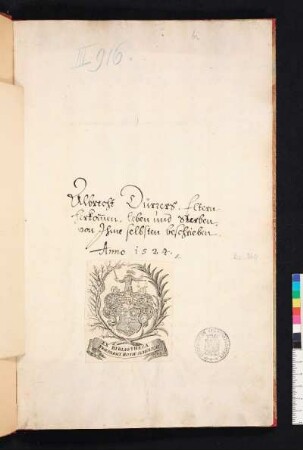 II 916.
Albrecht Dürers Eltern
herkomen, leben und sterben,
von Ihme selbsten beschrieben
Anno 1524.
EX BIBLIOTHECA